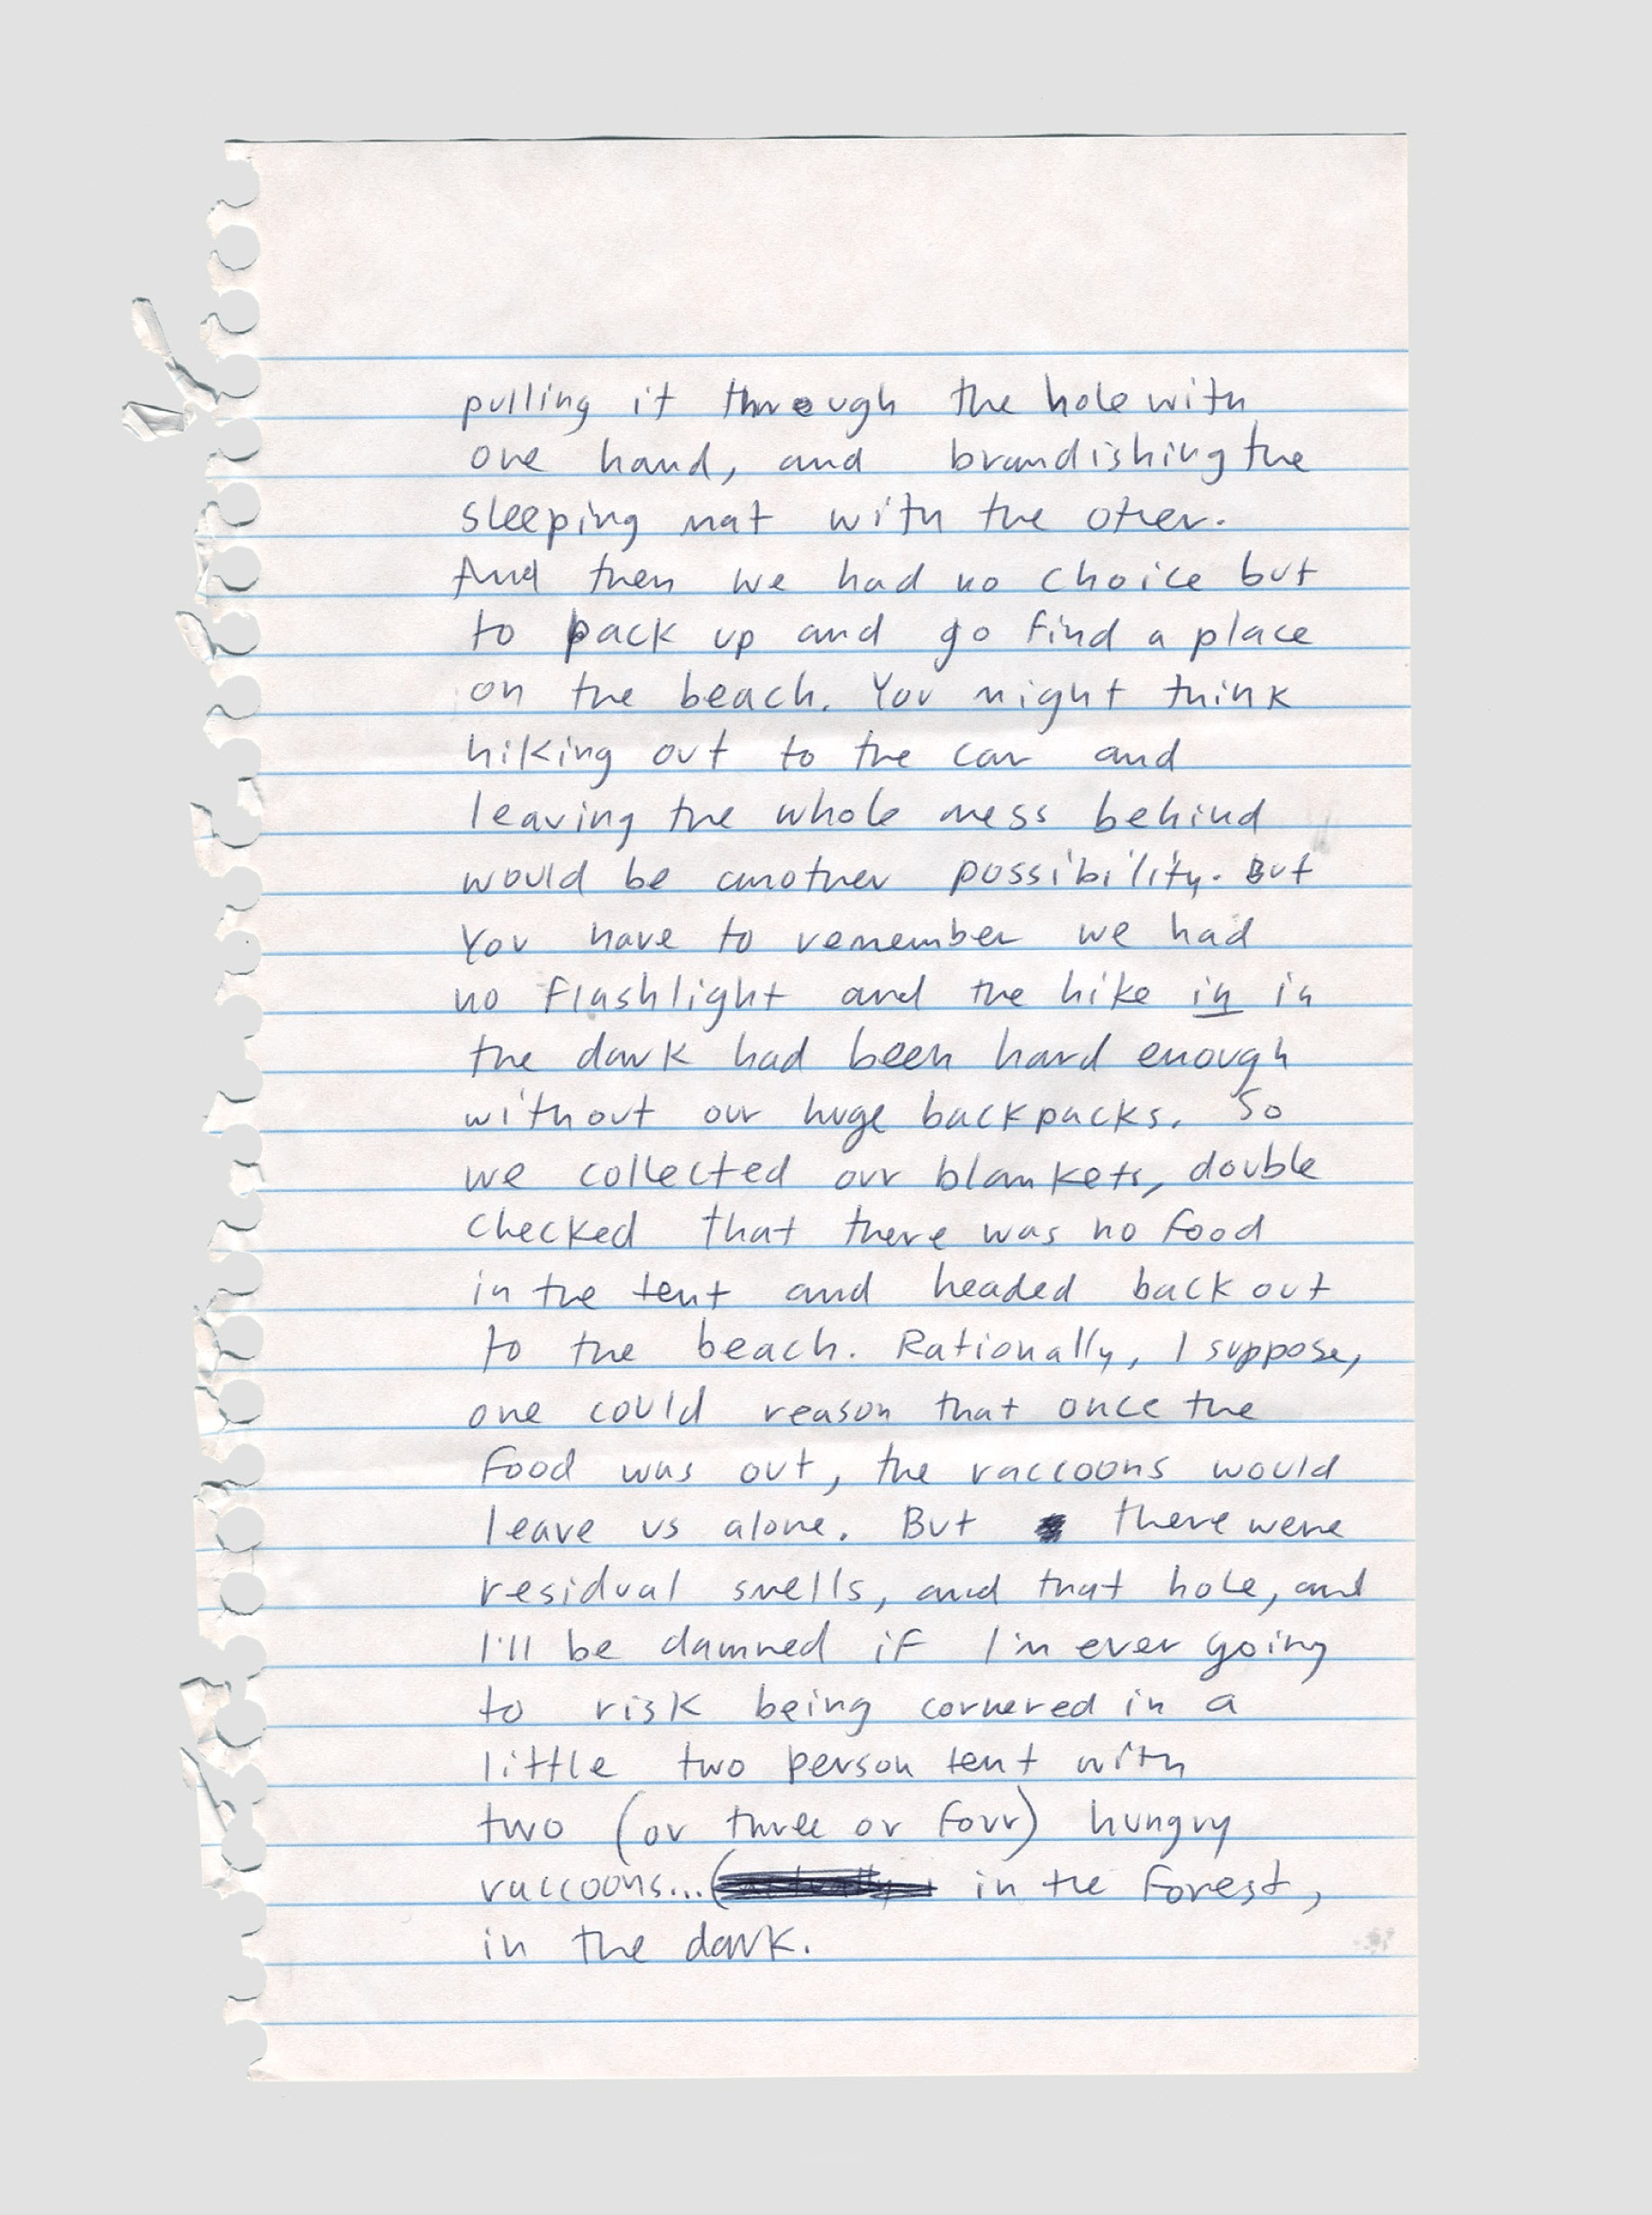 pulling it through the hole with
one hand, and brandishing the
sleeping mat with the other.
And then we had no choice but
to pack up and go find a place
on the beach. You might think
hiking out to the car and
leaving the whole mess behind
would be another possibility. But
you have to remember we had
no flashlight and the hike in in
the dark had been hard enough
without our huge backpacks. So
we collected our blankets, double
checked that there was no food
in the tent and headed back out
to the beach. Rationally, I suppose,
one could reason that once the
food was out, the raccoons would
leave us alone. But there were
residual smells, and that hole, and
I'll be damned if I'm ever going
to risk being cornered in a
little two person tent with
two (or three or four) hungry
raccoons...( in the forest,
in the dark.